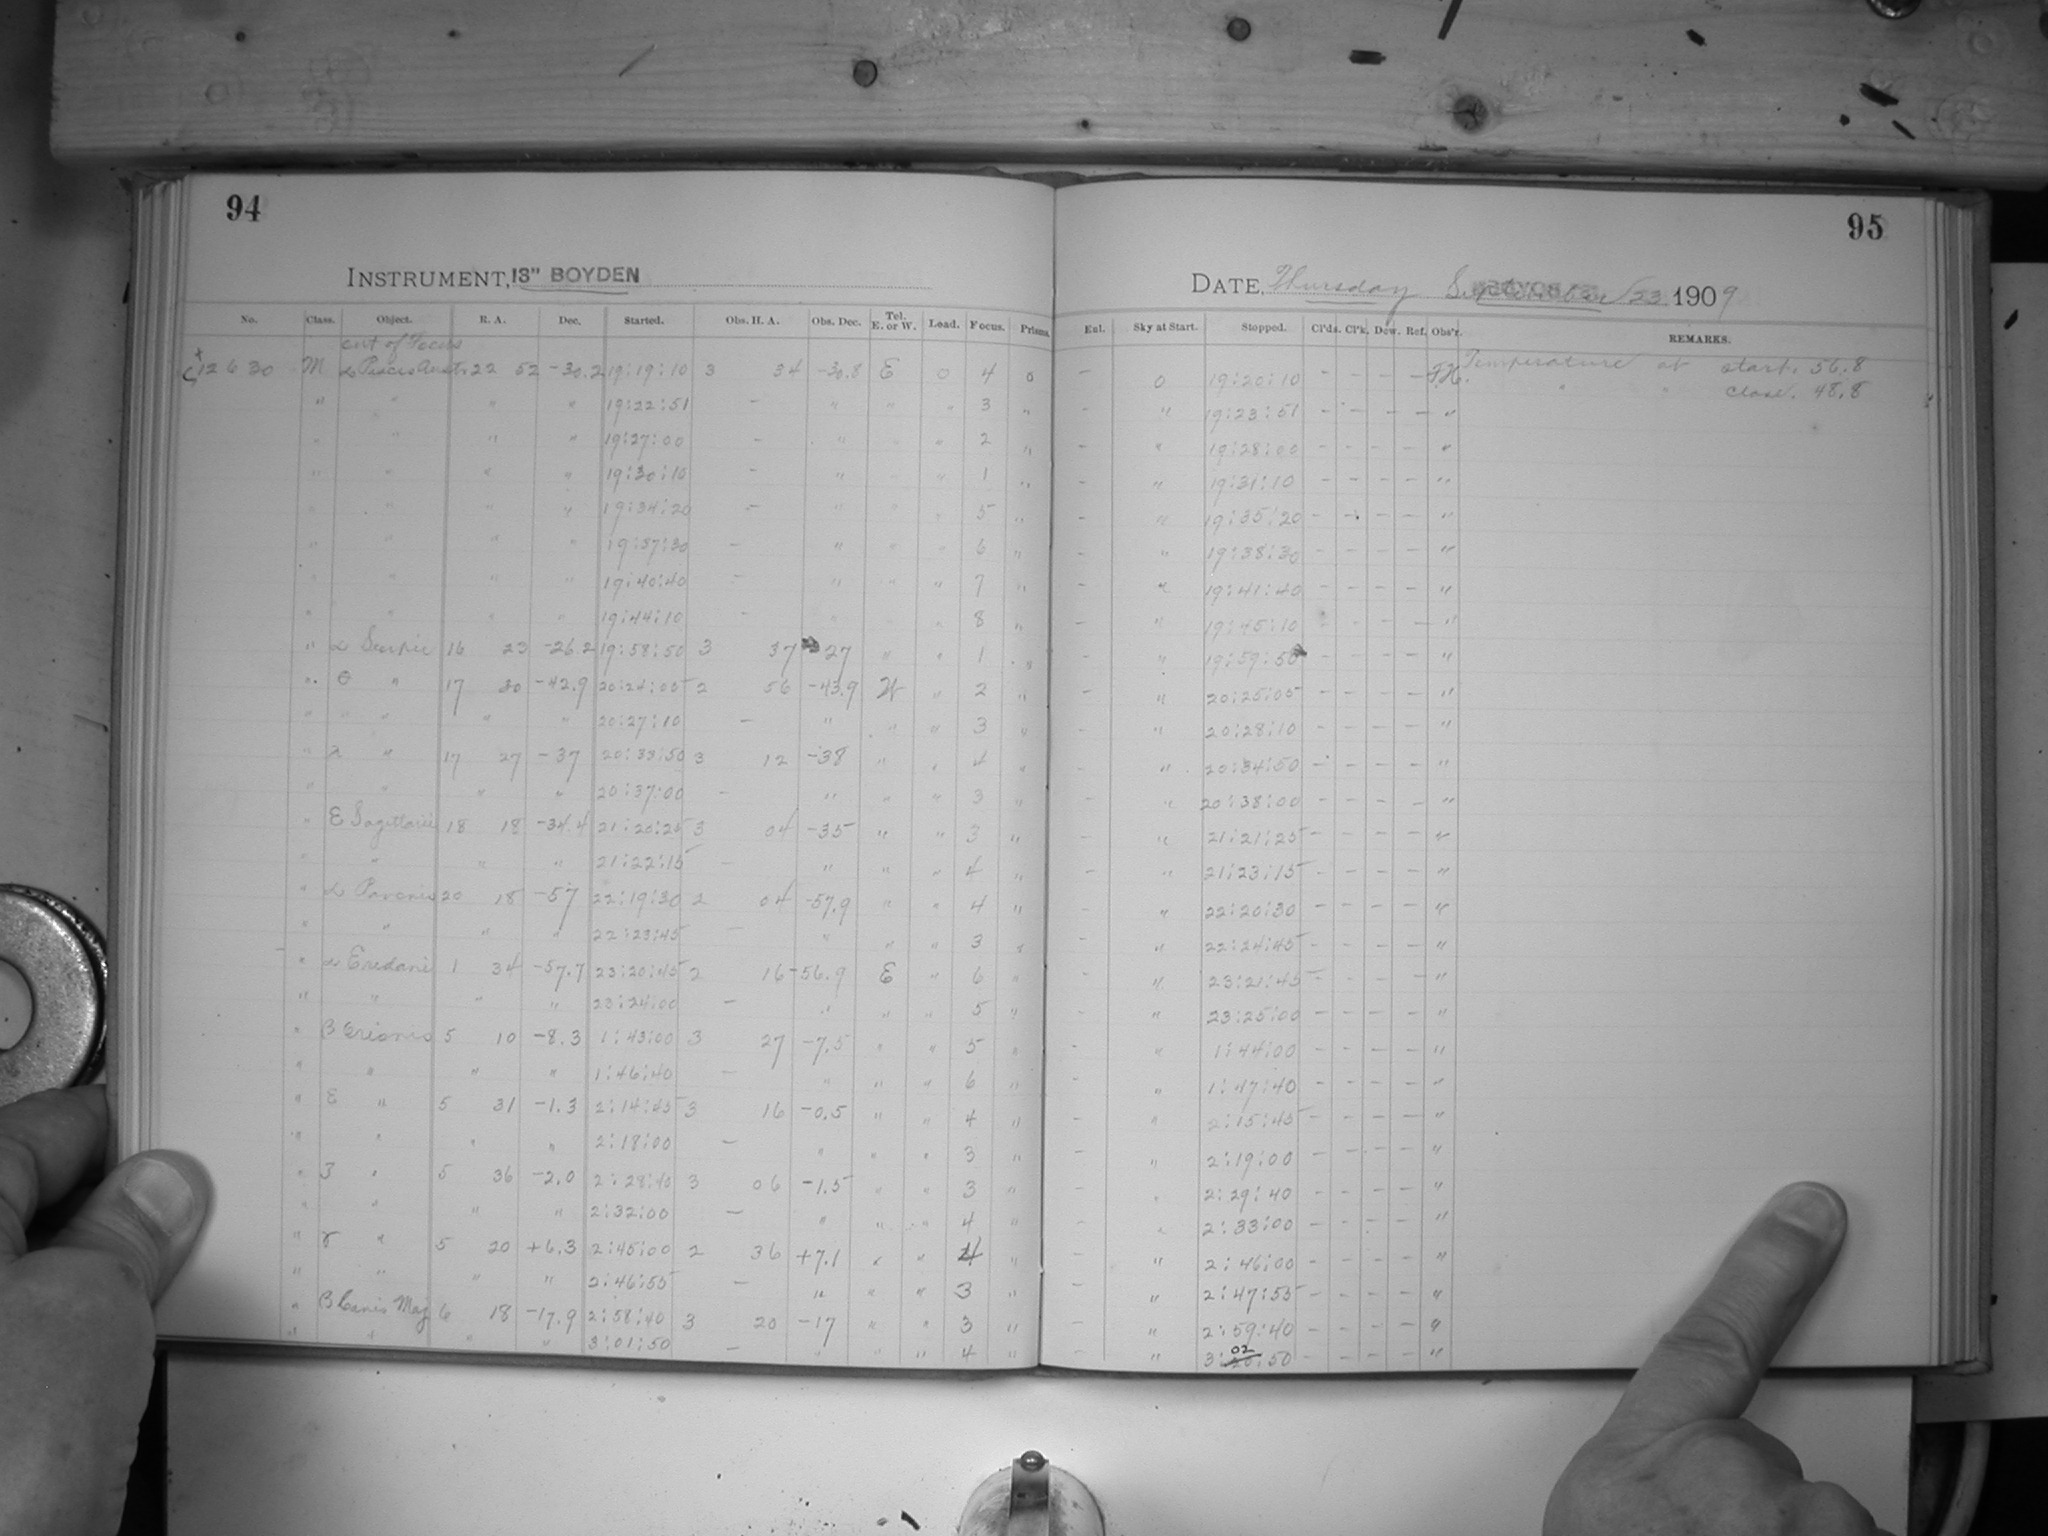 94
INSTRUMENT, 13" BOYDEN
No. Class. Object. R. A. Dec. Started. Obs. H. A. Obs. Dec. Tel. E. or W. Load. Focus. Prisms.
out of Focus
C12630 M α Piscis Austr. 22 52 -30.2 19:19:10 3 34 -30.8 E 0 4 0
" " " " 19:22:51 - " " " 3 "
" " " " 19:27:00 - " " " 2 "
" " " " 19:30:10 - " " " 1 "
" " " " 19:34:20 - " " " 5 "
" " " " 19:37:30 - " " " 6 "
" " " " 19:40:40 - " " " 7 "
" " " " 19:44:10 - " " " 8 "
" α Scorpii 16 23 -26.2 19:58:50 3 37 27 " " 1 "
" θ " 17 30 -42.9 20:24:05 2 56 -43.9 W " 2 "
" " " " " 20:27:10 - " " " 3 "
" λ " 17 27 -37 20:33:50 3 12 -38 " " 4 "
" " " " 20:37:00 - " " " 3 "
" E Sagittarii 18 18 -34.4 21:20:25 3 04 -35 " " 3 "
" " " " 21:22:15 - " " " 4 "
" α Pavonis 20 18 -57 22:19:30 2 04 -57.9 " " 4 "
" " " " 22:23:45 - " " " 3 "
" α Eridani 1 34 -57.7 23:20:45 2 16 -56.9 E " 6 "
" " " " 23:24:00 - " " " 5 "
" B Orionis 5 10 -8.3 1:43:00 3 27 -7.5 " " 5 "
" " " " 1:46:40 - " " " 6 "
" E " 5 31 -1.3 2:14:45 3 16 -0.5 " " 4 "
" " " " 2:18:00 - " " " 3 "
" ζ " 5 36 -2.0 2:28:40 3 06 -1.5 " " 3 "
" " " " 2:32:00 - " " " 4 "
" γ " 5 20 +6.3 2:45:00 2 36 +7.1 " " 4 "
" " " " 2:46:55 - " " " 3 "
" B Canis Maj 6 18 -17.9 2:58:40 3 20 -17 " " 3 "
" " " " 3:01:50 - " " " 4 "
95
DATE, Thursday September 23 1909
Enl. Sky at Start. Stopped. Cl'ds. Cl'k. Dew. Ref. Obs'r. REMARKS.
- 0 19:20:10 - - - - Temperature at start. 56.8
- " 19:23:51 - - - - " " " close. 48.8
- " 19:28:00 - - - - "
- " 19:31:10 - - - - "
- " 19:35:20 - - - - "
- " 19:38:30 - - - - "
- " 19:41:40 - - - - "
- " 19:45:10 - - - - "
- " 19:59:50 - - - - "
- " 20:25:05 - - - - "
- " 20:28:10 - - - - "
- " 20:34:50 - - - - "
- " 20:38:00 - - - - "
- " 21:21:25 - - - - "
- " 21:23:15 - - - - "
- " 22:20:30 - - - - "
- " 22:24:45 - - - - "
- " 23:21:45 - - - - "
- " 23:25:00 - - - - "
- " 1:44:00 - - - - "
- " 1:47:40 - - - - "
- " 2:15:45 - - - - "
- " 2:19:00 - - - - "
- " 2:29:40 - - - - "
- " 2:33:00 - - - - "
- " 2:46:00 - - - - "
- " 2:47:55 - - - - "
- " 2:59:40 - - - - "
- " 3:02:50 - - - - "